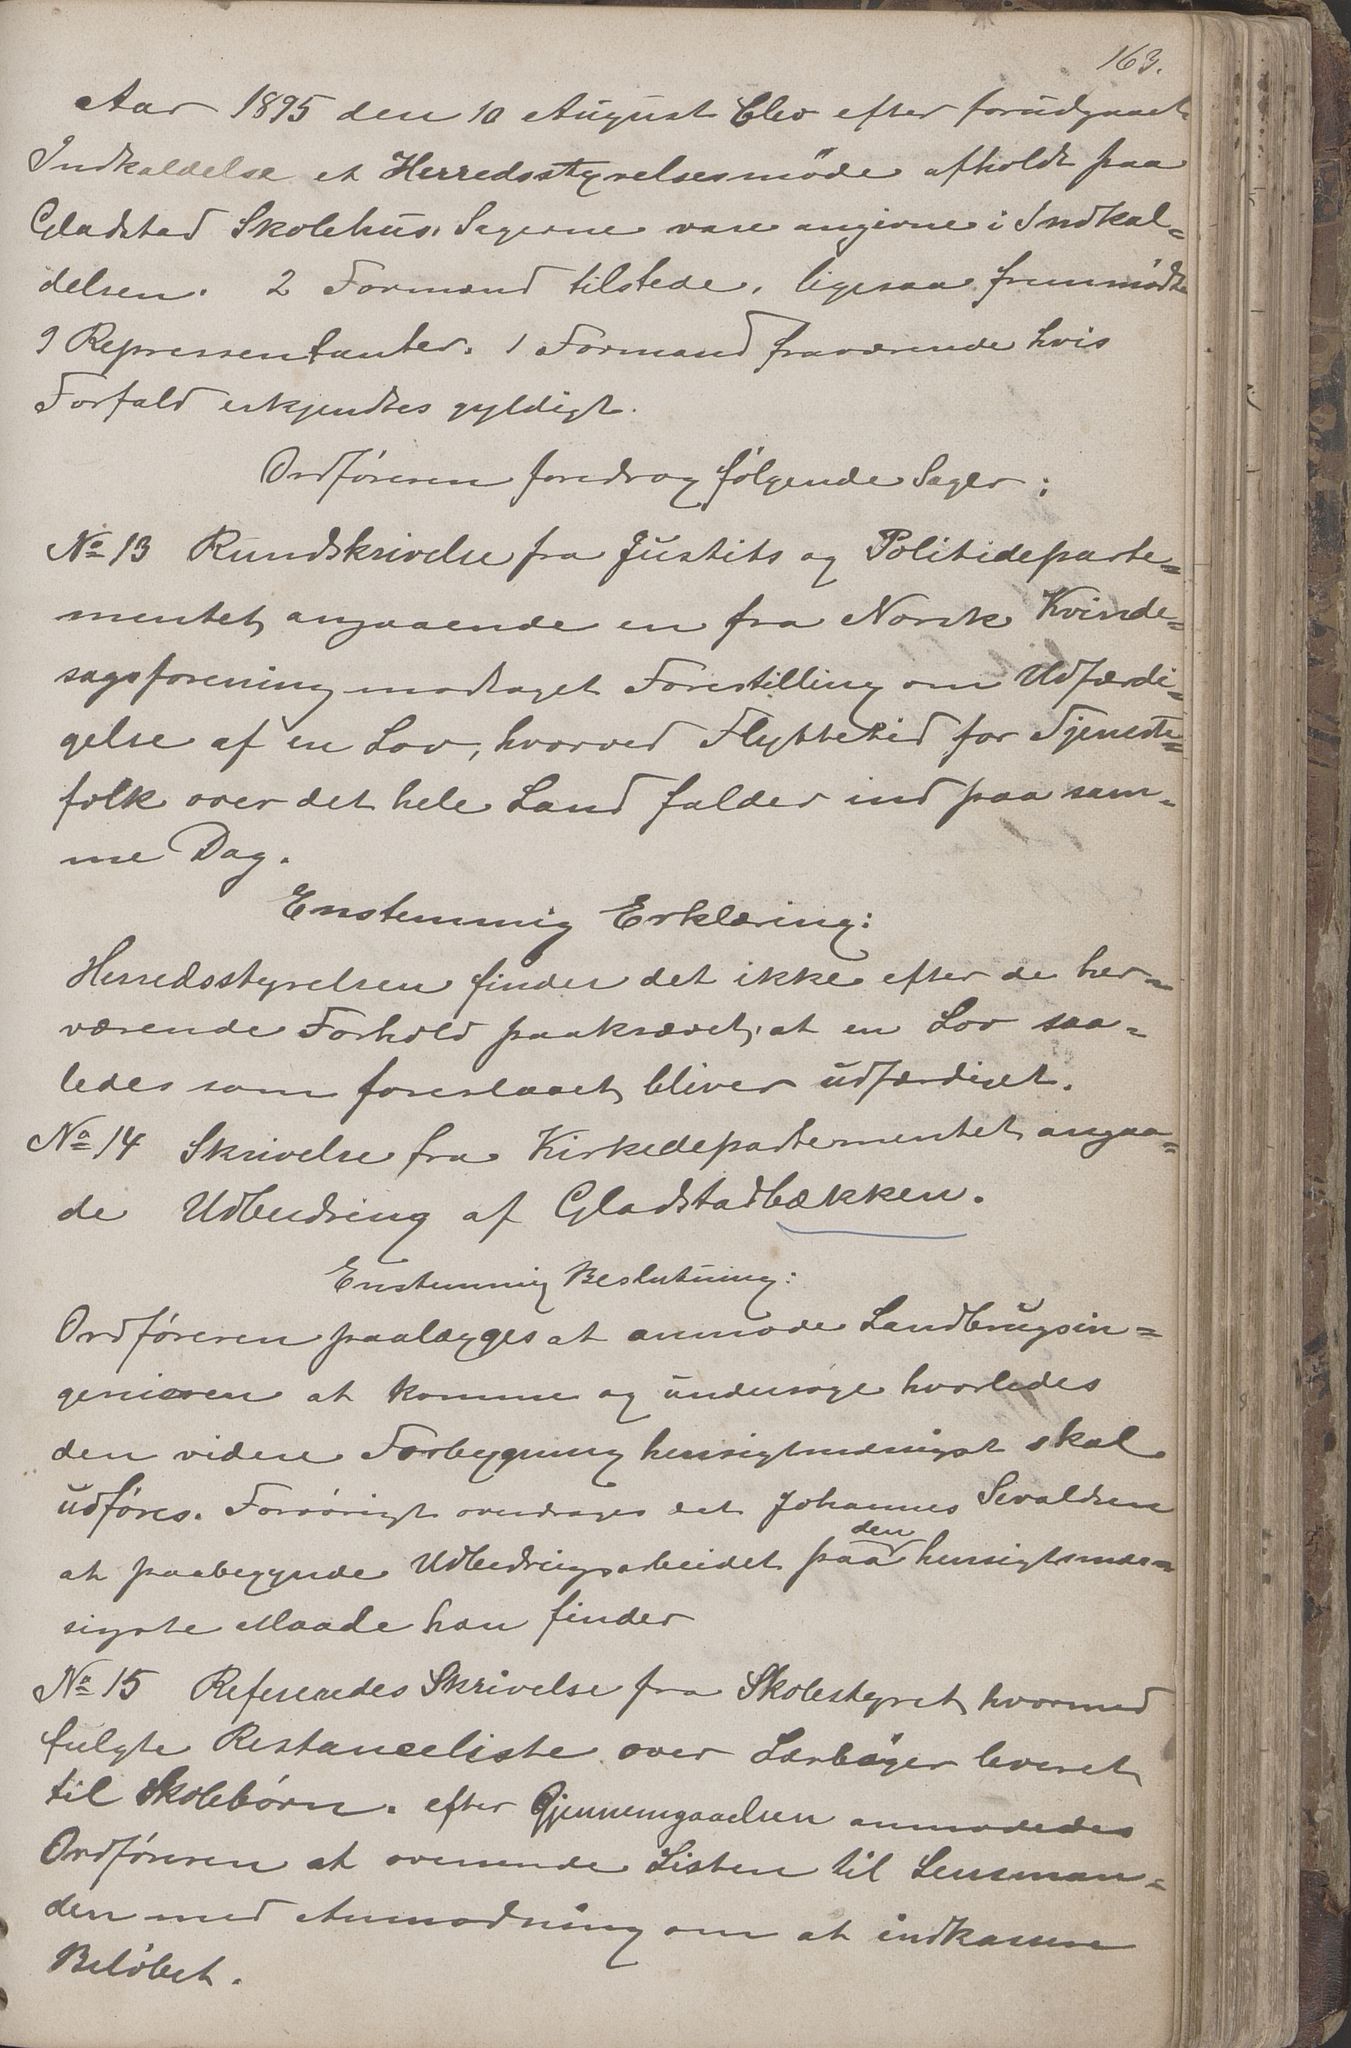 163.
Aar 1895 den 10 August blev efter forudgaaet
Indkaldelse et Herredsstyrelsesmöde afholdt paa
Gladstad Skolehus. Sagerne vare angivne i Indkal=
delsen. 2 Formænd tilstede, ligesaa fremmødte
9 Repressentanter. 1 Formand fraværende hvis
Forfald erkjendtes gyldigt.
Ordføreren foredrog følgende Sager:
No 13 Rundskrivelse fra Justits og Politideparte=
mentet, angaaende en fra Norsk Kvinde=
sagsforening modtaget Forestilling om Udfærdi=
gelse af en Lov, hvorved Flyttetid for Tjeneste=
folk over det hele Land falder ind paa sam=
me Dag.
Enstemmig Erklæring:
Herredsstyrelsen finder det ikke efter de her=
værende Forhold paakrævet, at en Lov saa=
ledes som foreslaaet, bliver udfærdiget.
No 14 Skrivelse fra Kirkedepartementet angaa=
de Udbedring af Gladstadbækken.
Enstemmig Beslutning:
Ordføreren paalægges at anmode Landbrugsin=
geniøren at komme og undersøge hvorledes
den videre Forbygning hensigtmæsigst skal
udføres. Forøvrigt overdrages det Johannes Sevaldsen
at paabegynde Udbedringsarbeidet paa den hensigtsmæs=
sigste Maade han finder
No 15 Refereredes Skrivelse fra Skolestyret, hvormed
fulgte Restanceliste over Lærbøger leveret
til Skolebørn. efter Gjennemgaaelsen anmodedes
Ordføreren at oversende Listen til Lensman=
den med Anmodning om at indkassere
Beløbet.